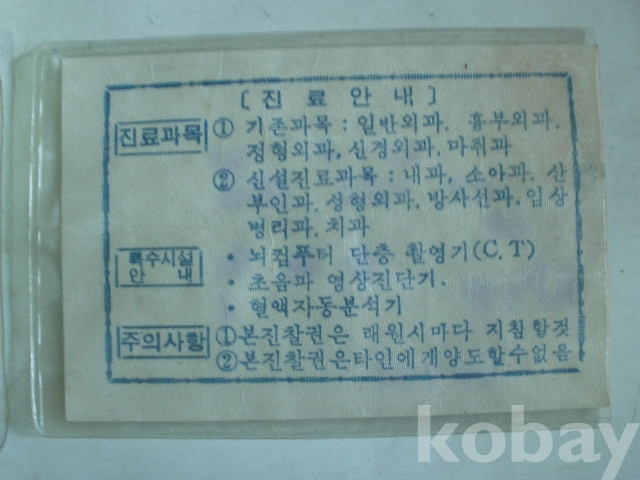 [진 료 안 내]
진료과목 ① 기존과목 : 일반외과, 흉부외과,
정형외과, 신경외과, 마취과
② 신설진료과목 : 내과, 소아과, 산
부인과, 성형외과, 방사선과, 임상
병리과, 치과
특수시설
안 내
• 뇌컴퓨터 단층 촬영기(C.T)
• 초음파 영상진단기.
• 혈액자동분석기
주의사항 ①본진찰권은 래원시마다 지침할것
②본진찰권은타인에게양도할수없음
kobay